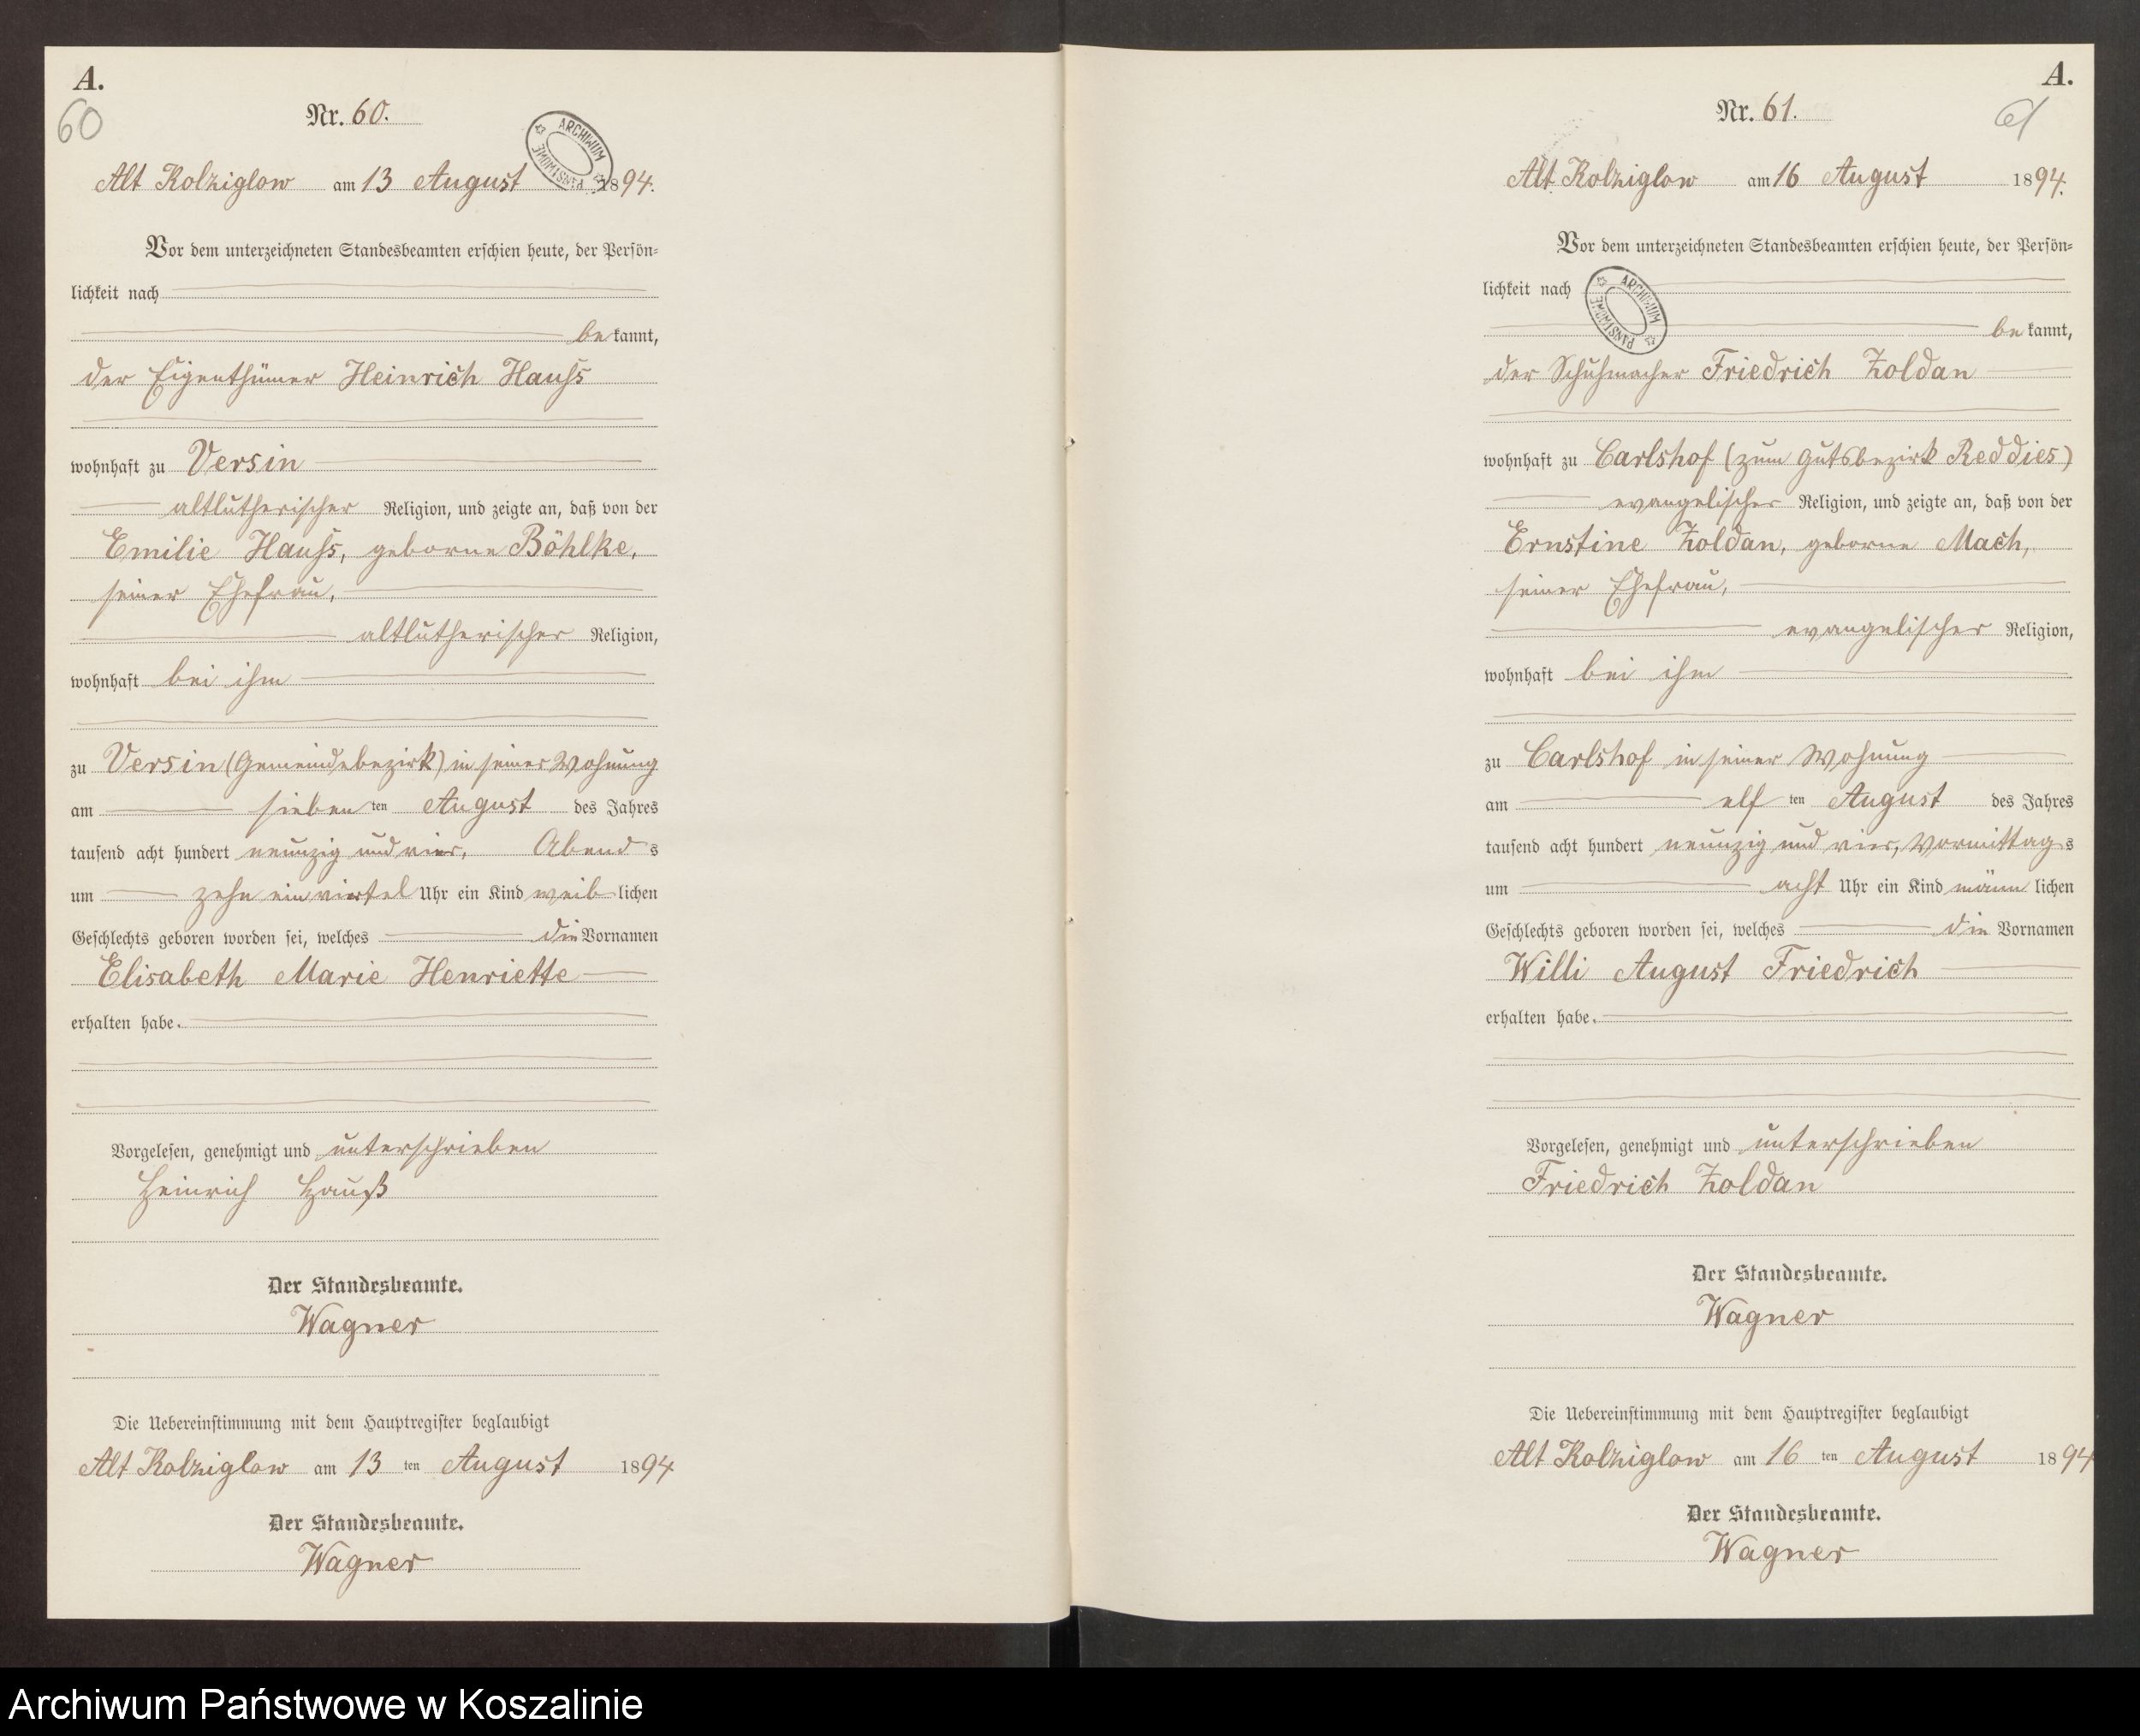 A.
60
Nr. 60.
ARCHIWUM PAŃSTWOWE
Alt Kolziglow am 13 August 1894.
Vor dem unterzeichneten Standesbeamten erschien heute, der Persön-
lichkeit nach
bekannt,
der Eigenthümer Heinrich Hauß
wohnhaft zu Versin
altlutherischer Religion, und zeigte an, daß von der
Emilie Hauß, geborne Böhlke,
seiner Ehefrau,
altlutherischer Religion,
wohnhaft bei ihm
zu Versin (Gemeindebezirk) in seiner Wohnung
am sieben ten August des Jahres
tausend acht hundert neunzig und vier, Abend s
um zehn ein viertel Uhr ein Kind weiblichen
Geschlechts geboren worden sei, welches die Vornamen
Elisabeth Marie Henriette
erhalten habe.
Vorgelesen, genehmigt und unterschrieben
Heinrich Hauß
Der Standesbeamte.
Wagner
Die Uebereinstimmung mit dem Hauptregister beglaubigt
Alt Kolziglow am 13 ten August 1894
Der Standesbeamte.
Wagner
A.
61
Nr. 61.
Alt Kolziglow am 16 August 1894.
Vor dem unterzeichneten Standesbeamten erschien heute, der Persön-
lichkeit nach
ARCHIWUM PAŃSTWOWE
bekannt,
der Schuhmacher Friedrich Zoldan
wohnhaft zu Carlshof (zum Gutsbezirk Reddies)
evangelischer Religion, und zeigte an, daß von der
Ernstine Zoldan, geborne Mach,
seiner Ehefrau,
evangelischer Religion,
wohnhaft bei ihm
zu Carlshof in seiner Wohnung
am elf ten August des Jahres
tausend acht hundert neunzig und vier, Vormittag s
um acht Uhr ein Kind männlichen
Geschlechts geboren worden sei, welches die Vornamen
Willi August Friedrich
erhalten habe.
Vorgelesen, genehmigt und unterschrieben
Friedrich Zoldan
Der Standesbeamte.
Wagner
Die Uebereinstimmung mit dem Hauptregister beglaubigt
Alt Kolziglow am 16 ten August 1894
Der Standesbeamte.
Wagner
Archiwum Państwowe w Koszalinie